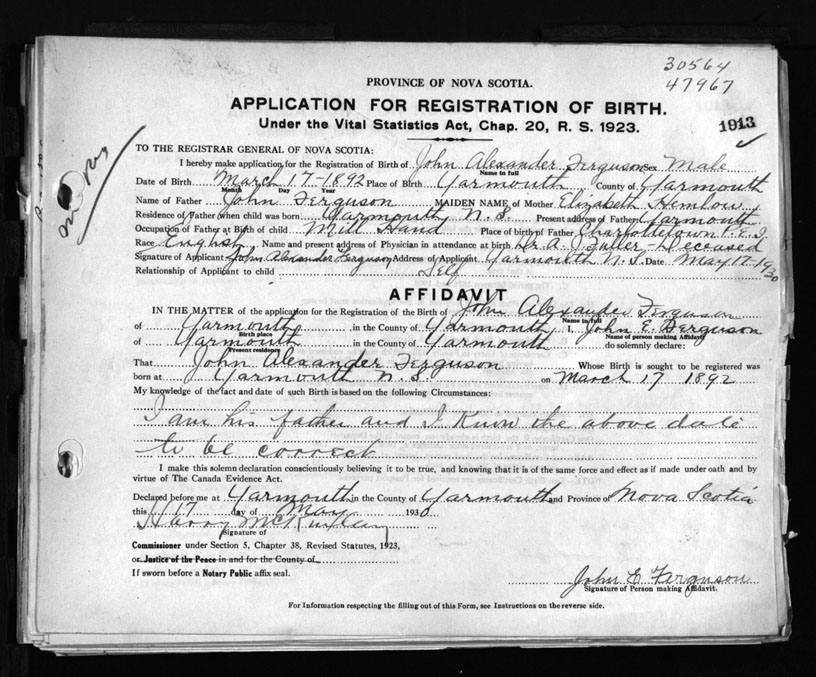 30564
47967
PROVINCE OF NOVA SCOTIA.
APPLICATION FOR REGISTRATION OF BIRTH.
Under the Vital Statistics Act, Chap. 20, R. S. 1923.
1913
TO THE REGISTRAR GENERAL OF NOVA SCOTIA:
I hereby make application for the Registration of Birth of John Alexander Ferguson Sex Male
Name in full
Date of Birth March 17-1892 Place of Birth Yarmouth County of Yarmouth
Month Day Year
Name of Father John Ferguson MAIDEN NAME of Mother Elizabeth Hemlow
Residence of Father when child was born Yarmouth N.S. Present address of Father Yarmouth
Occupation of Father at Birth of child Mill Hand Place of birth of Father Charlottetown P.E.I.
Race English Name and present address of Physician in attendance at birth Dr. A. J. Fuller - Deceased
Signature of Applicant John Alexander Ferguson Address of Applicant Yarmouth N.S. Date May 17-1930
Relationship of Applicant to child Self
AFFIDAVIT
IN THE MATTER of the application for the Registration of the Birth of John Alexander Ferguson
Name in full
of Yarmouth, in the County of Yarmouth I, John E. Ferguson
Birth place Name of person making Affidavit
of Yarmouth in the County of Yarmouth do solemnly declare:
Present residence
That John Alexander Ferguson Whose Birth is sought to be registered was
born at Yarmouth N.S. on March 17 1892
My knowledge of the fact and date of such Birth is based on the following Circumstances:
I am his father and I Know the above date
to be correct
I make this solemn declaration conscientiously believing it to be true, and knowing that it is of the same force and effect as if made under oath and by
virtue of The Canada Evidence Act.
Declared before me at Yarmouth in the County of Yarmouth and Province of Nova Scotia
this 17 day of May 1930
Harry McKinlay
Signature of
Commissioner under Section 5, Chapter 38, Revised Statutes, 1923,
or Justice of the Peace in and for the County of
If sworn before a Notary Public affix seal.
John E Ferguson
Signature of Person making Affidavit.
For Information respecting the filling out of this Form, see Instructions on the reverse side.